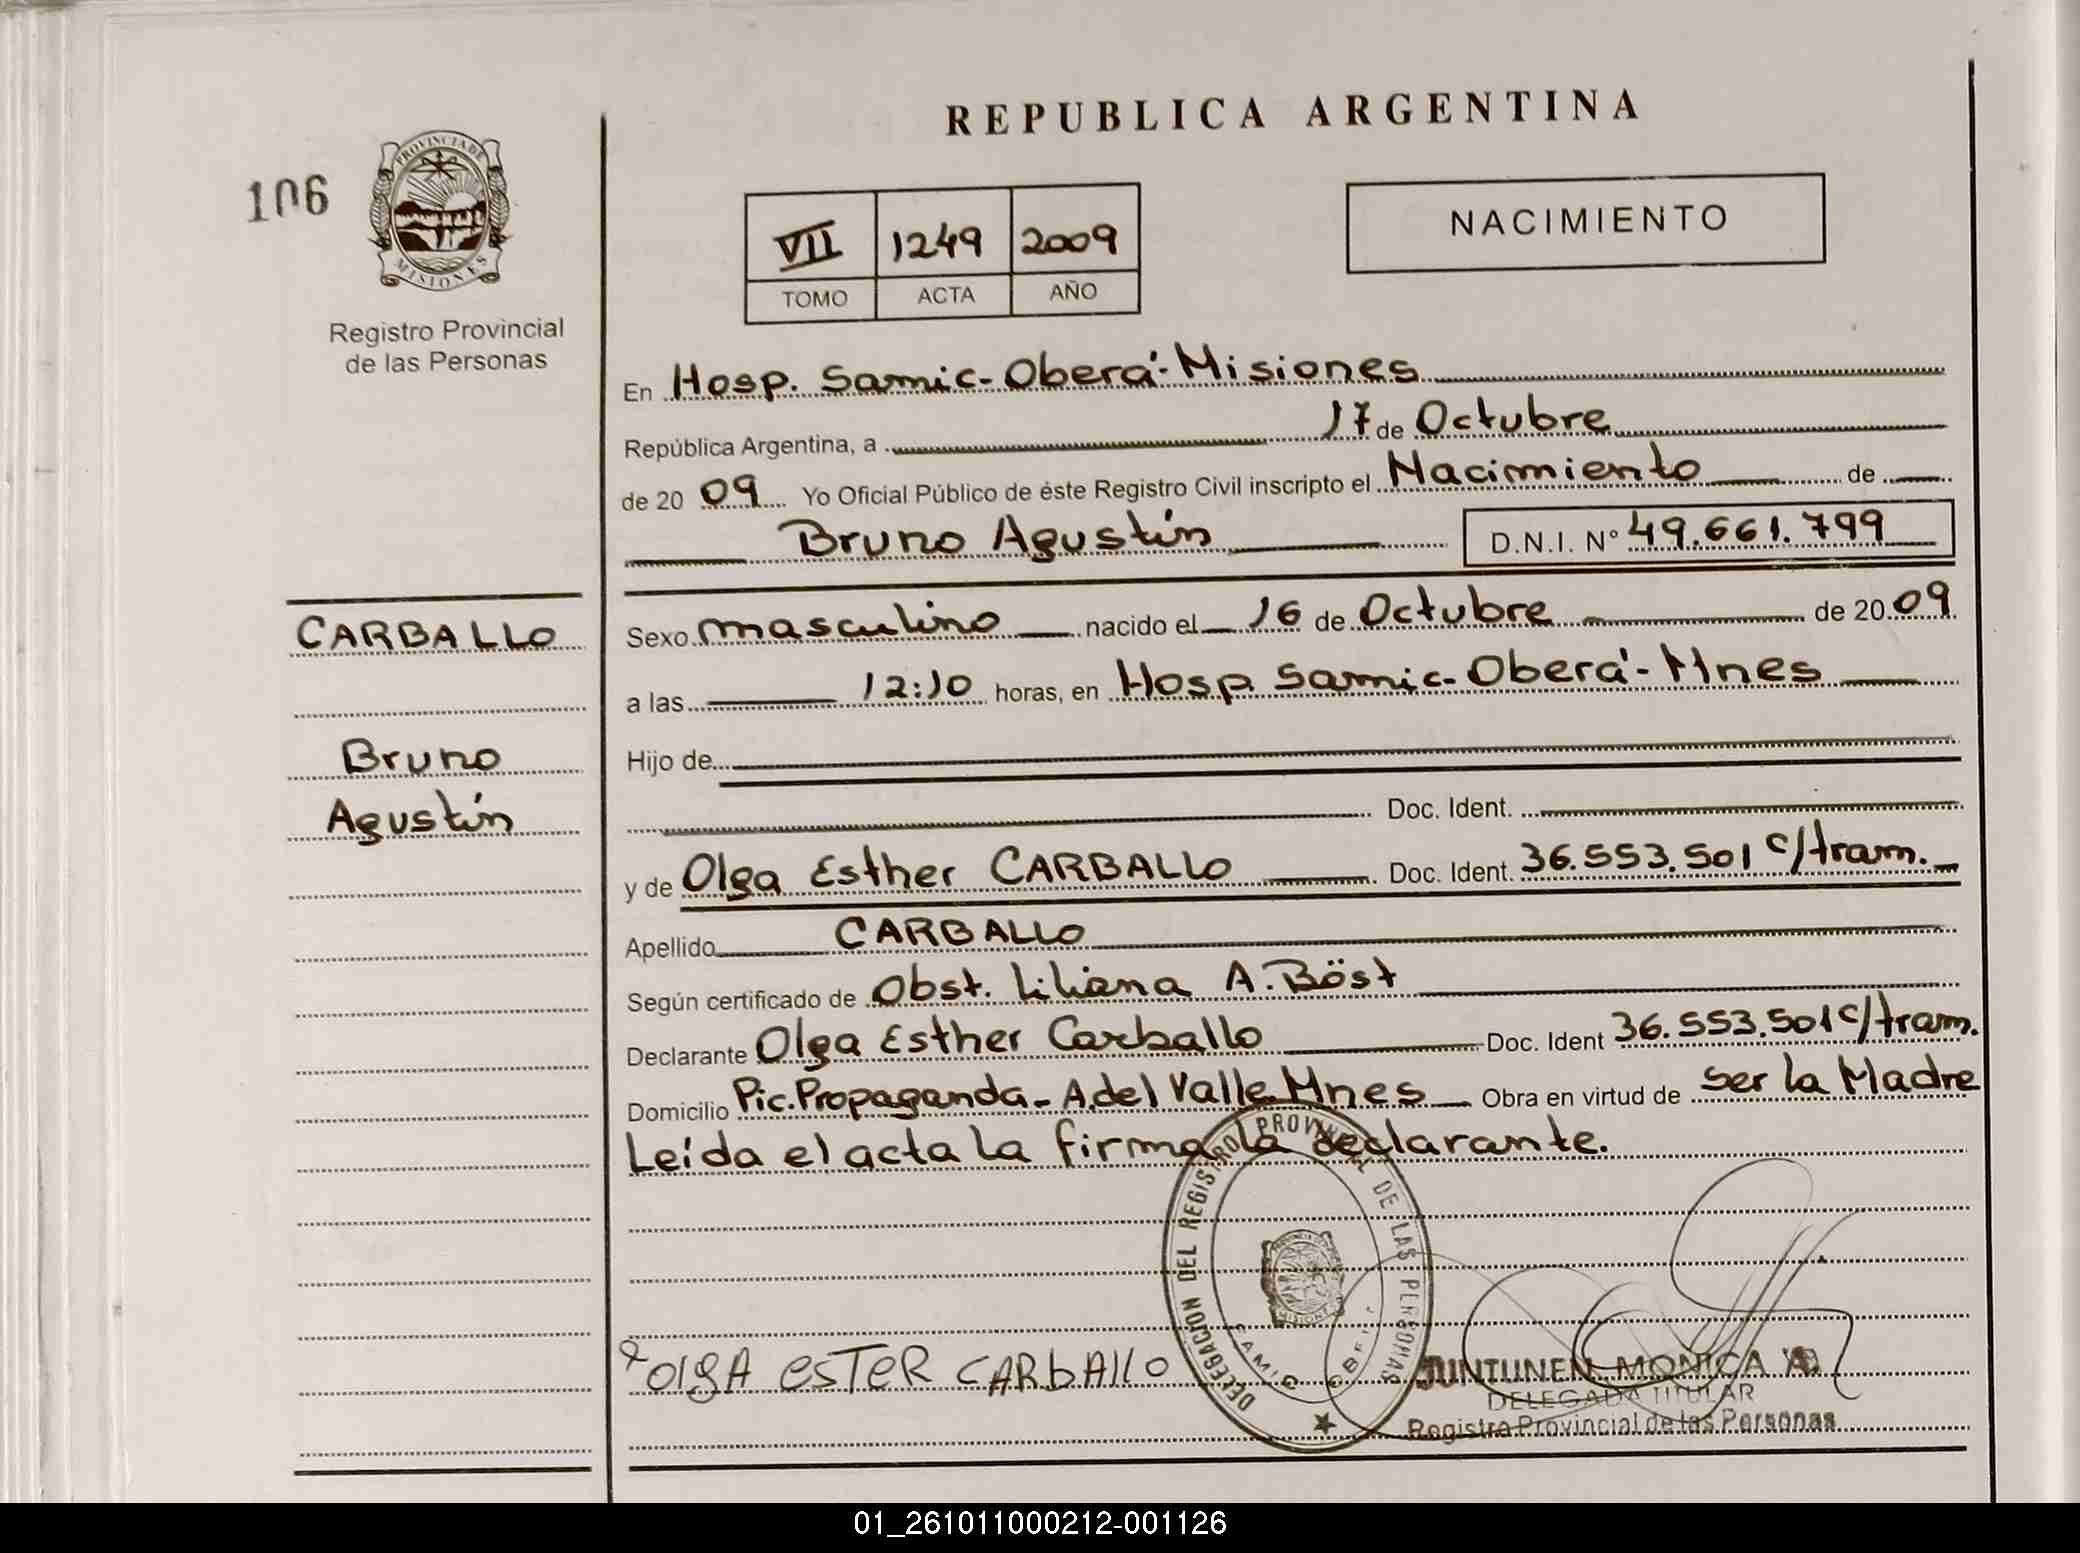 REPUBLICA ARGENTINA
106
PROVINCIA DE
MISIONES
Registro Provincial
de las Personas
VII 1249 2009
TOMO ACTA AÑO
NACIMIENTO
En Hosp. Samic-Oberá-Misiones
República Argentina, a 17 de Octubre
de 20 09 Yo Oficial Público de éste Registro Civil inscripto el Nacimiento de
Bruno Agustín D.N.I. Nº 49.661.799
CARBALLO
Bruno
Agustín
Sexo masculino nacido el 16 de Octubre de 20 09
a las 12:10 horas, en Hosp Samic-Oberá-Mnes
Hijo de
Doc. Ident.
y de Olga Esther CARBALLO Doc. Ident. 36.553.501 c/tram.
Apellido CARBALLO
Según certificado de Obst. Liliana A. Böst
Declarante Olga Esther Carballo Doc. Ident 36.553.501 c/tram.
Domicilio Pic.Propaganda-A.del Valle.Mnes Obra en virtud de ser la Madre
Leída el acta la firma la declarante.
DELEGACION DEL REGISTRO PROVINCIAL DE LAS PERSONAS
OlgA esTeR CARbAllo
JUNTUNEN MONICA
DELEGADA TITULAR
Registro Provincial de las Personas
01_261011000212-001126